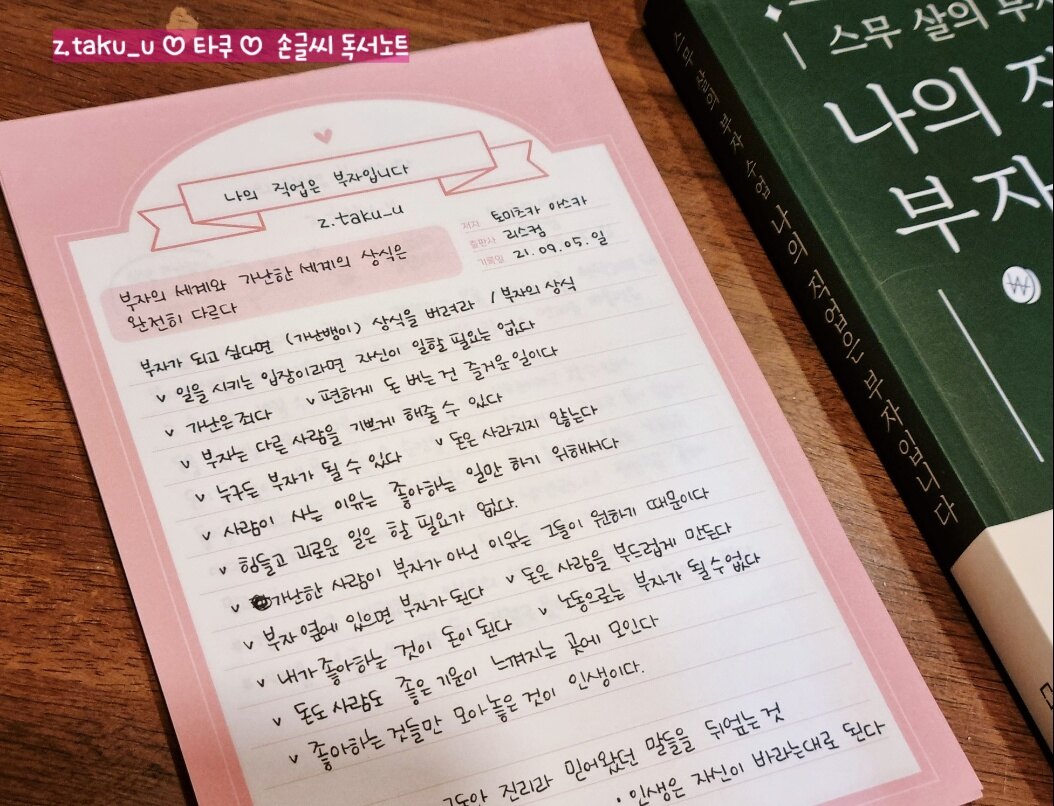 z.taku_u ♡ 타쿠 ♡ 손글씨 독서노트
나의 직업은 부자입니다
z.taku_u
저자 토미츠카 아스카
출판사 리스컴
기록일 21. 09. 05. 일
부자의 세계와 가난한 세계의 상식은
완전히 다르다
부자가 되고 싶다면 (가난뱅이) 상식을 버려라 / 부자의 상식
v 일을 시키는 입장이라면 자신이 일할 필요는 없다
v 가난은 죄다 v 편하게 돈 버는 건 즐거운 일이다
v 부자는 다른 사람을 기쁘게 해줄 수 있다
v 누구든 부자가 될 수 있다 v 돈은 사라지지 않는다
v 사람이 사는 이유는 좋아하는 일만 하기 위해서다
v 힘들고 괴로운 일은 할 필요가 없다.
v 가난한 사람이 부자가 아닌 이유는 그들이 원하기 때문이다
v 부자 옆에 있으면 부자가 된다 v 돈은 사람을 부드럽게 만든다
v 내가 좋아하는 것이 돈이 된다 v 노동으로는 부자가 될 수 없다
v 돈도 사람도 좋은 기운이 느껴지는 곳에 모인다
v 좋아하는 것들만 모아 놓은 것이 인생이다.
그동안 진리라 믿어왔던 말들을 뒤엎는 것
· 인생은 자신이 바라는대로 된다
스무 살의 부자 수업 나의 직업은 부자입니다
스무 살의 부자
나의 직
부자
₩